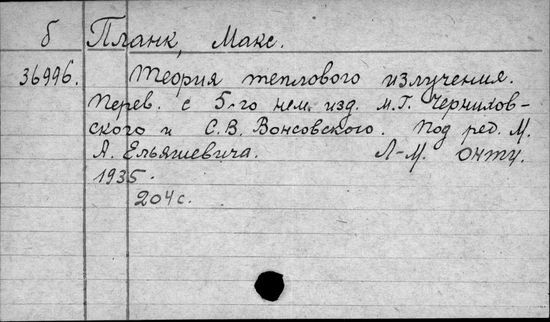 б Планк, Макс.
36996. Теория теплового излучения.
Перев. с 5-го нем. изд. М.Г. Черниховского
ского и С.В. Вонсовского. Под ред. М.
А. Ельяшевича. Л-М. ОНТИ.
1935.
204 с.